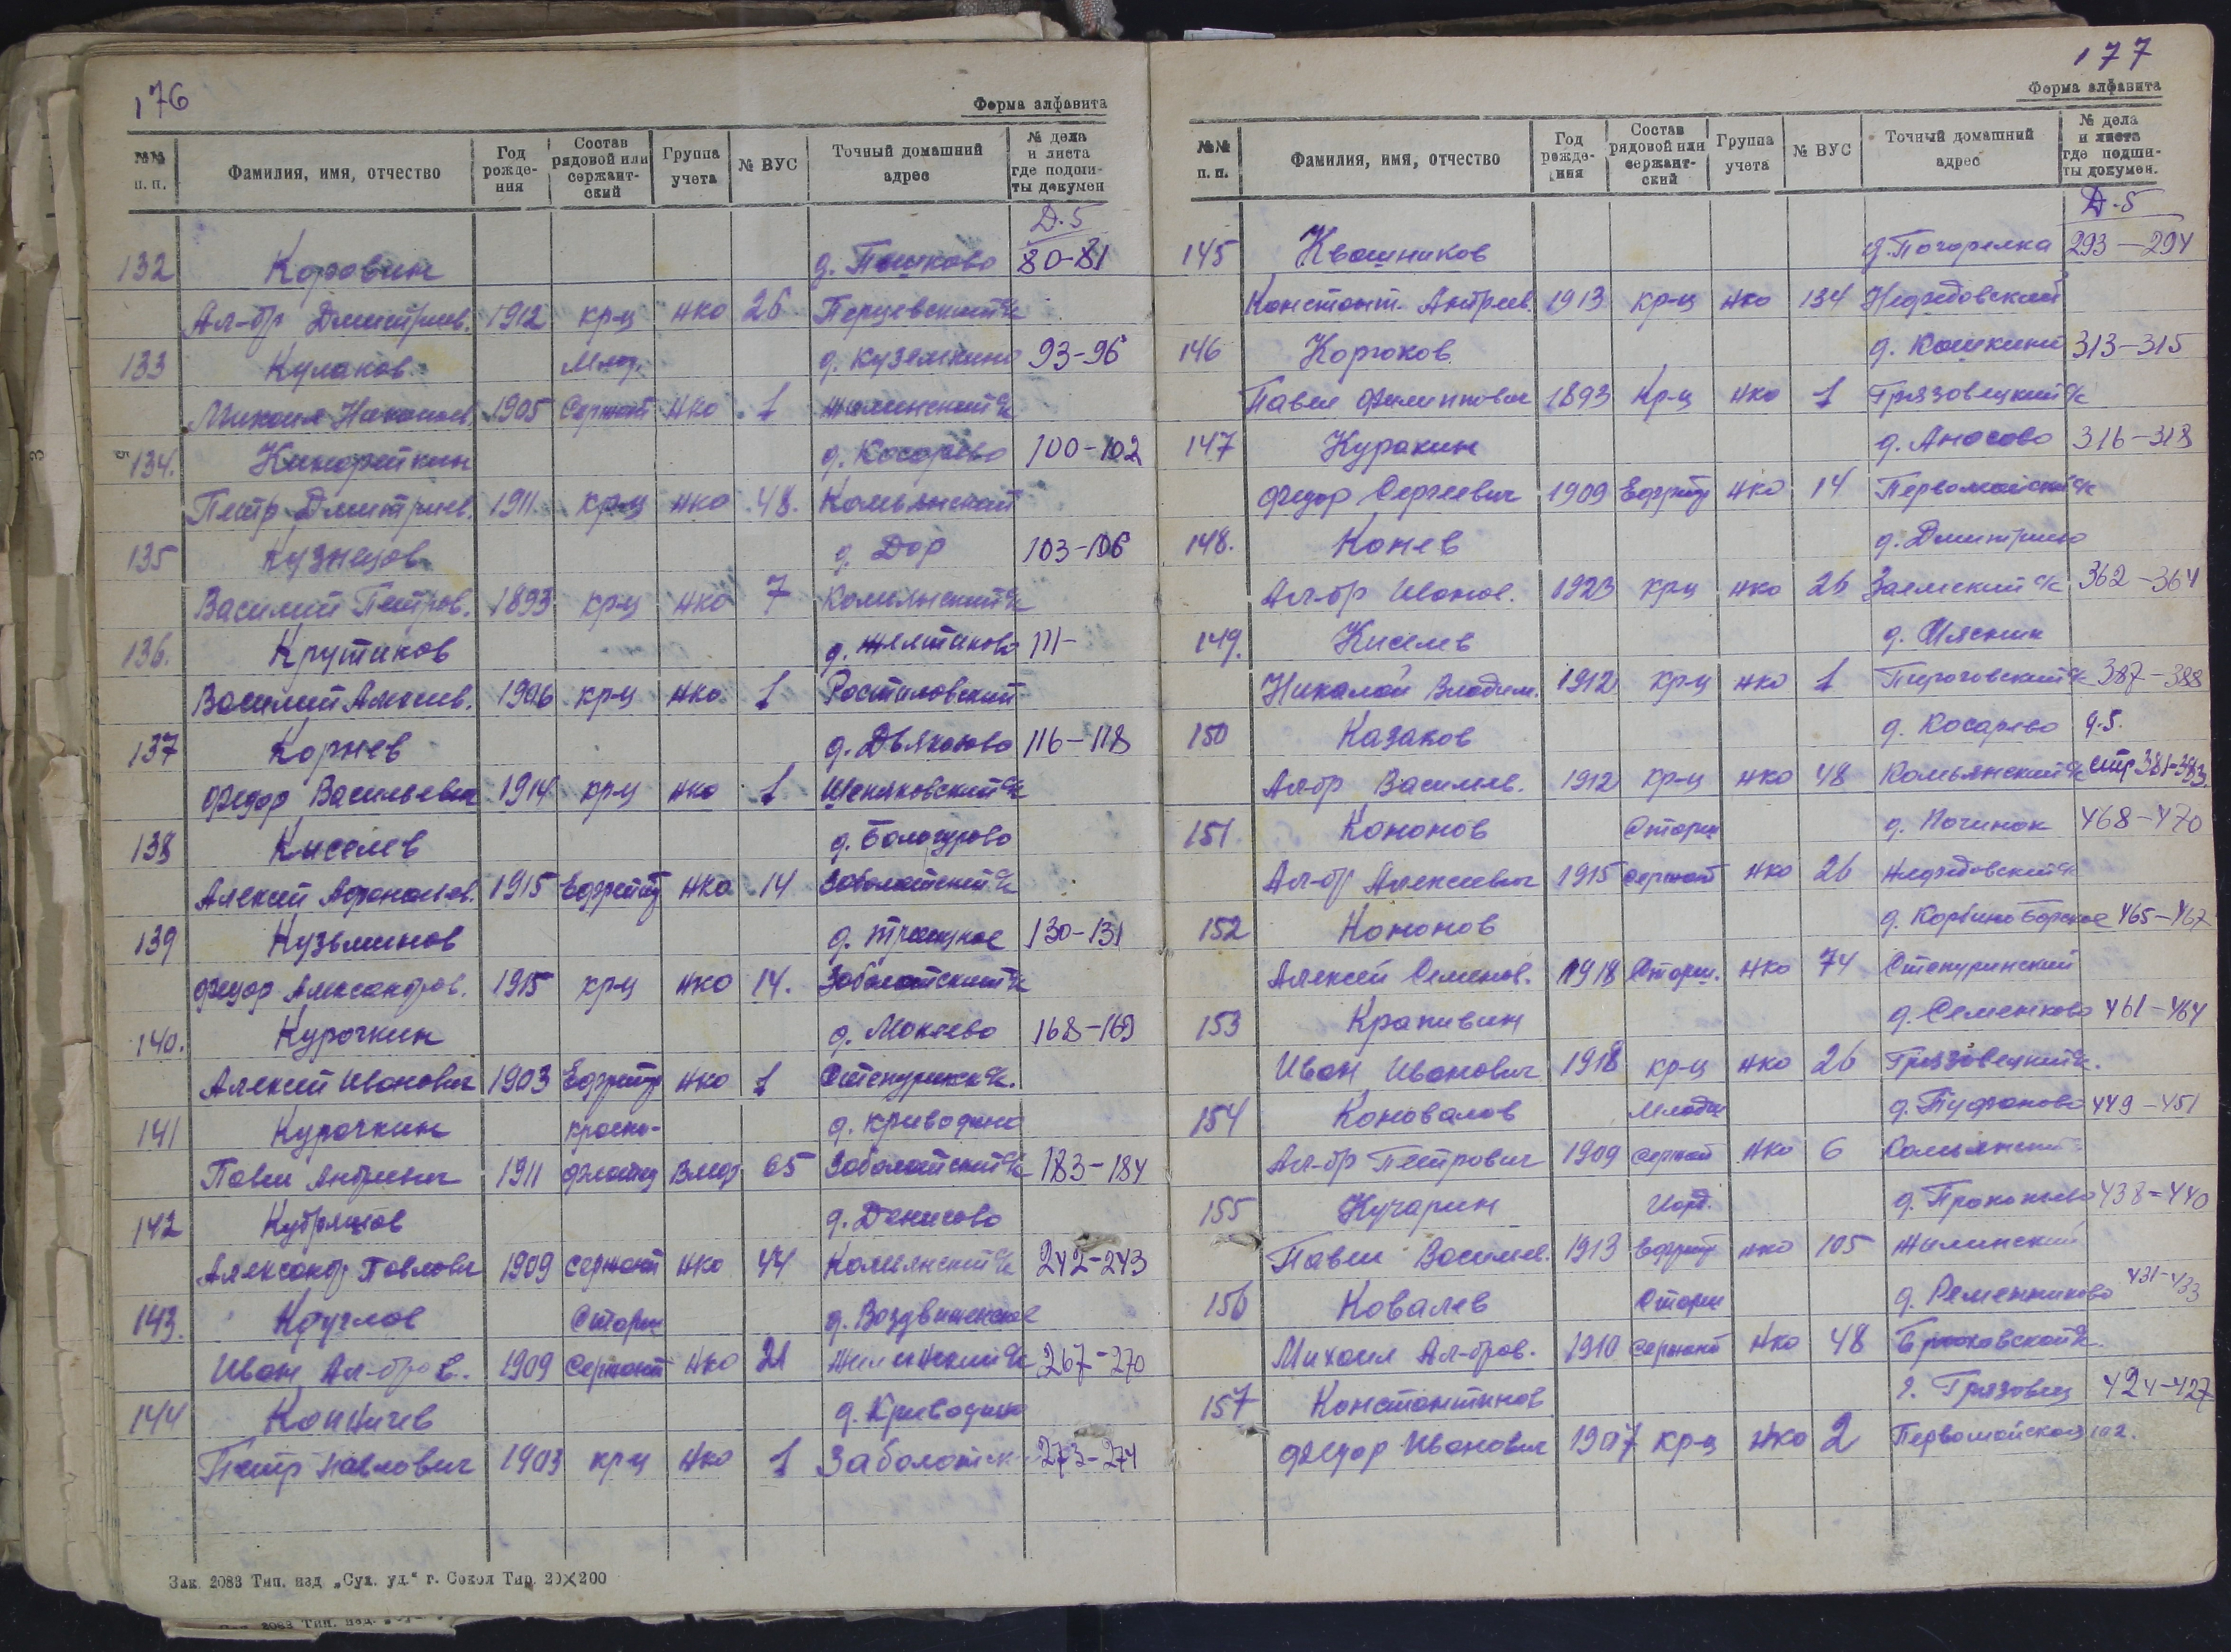 176
Форма алфавита
№№ п. п. Фамилия, имя, отчество Год рожде- ния Состав рядовой или сержант- ский Группа учета № ВУС Точный домашний адрес № дела и листа где подши- ты докумен
Д.5
132 Коровин д. Пашково 80-81
Ал-др Дмитриев. 1912 кр-ц нко 26 Перцевский с/с
133 Кулаков Млад. д. Куземкино 93-96
Михаил 1905 Сержант нко 1 Жилинский с/с
134. д. Косарево 100-102
Петр Дмитриев. 1911 кр-ц нко 48. Комьянский
135 Кузнецов д. Дор 103-106
Василий Петров. 1893 кр-ц нко 7 Комьянский с/с
136. Крутиков 111-
Василий Алексеев. 1906 кр-ц нко 1 Ростиловский
137 Корнев д. Дьяконово 116-118
Федор Васильевич 1914 кр-ц нко 1
138 Киселев
Алексей 1915 Ефрейтр нко 14 Заболотский с/с
139 Кузьминов 130-131
Федор Александров. 1915 кр-ц нко 14. Заболотский с/с
140. Курочкин д. Мокеево 168-169
Алексей Иванович 1903 Ефрейтр нко 1
141 Курочкин красно- д. Криводино
Павел Андреевич 1911 65 Заболотский с/с 183-184
142 Кудряшов д. Денисово
Александр Павлович 1909 сержант нко 44 Комьянский с/с 242-243
143. Круглов д. Воздвиженское
Иван Ал-дров. 1909 Сержант нко 21 Жилинский с/с 267-270
144 Коничев д. Криводино
Петр Павлович 1903 кр-ц нко 1 Заболотск 273-274
Зак. 2083 Тип. изд „Сух. уд.“ г. Сокол Тир. 20×200
177
Форма алфавита
№№ п. п. Фамилия, имя, отчество Год рожде- ния Состав рядовой или сержант- ский Группа учета № ВУС Точный домашний адрес № дела и листа где подши- ты докумен.
Д.5
145 Квашников д. Погорелка 293-294
Констант. Андреев. 1913 кр-ц нко 134 Нефедовский
146 Корюков д. Кашкино 313-315
Павел Филиппович 1893 кр-ц нко 1 Грязовецкий с/с
147 Куракин д. Аносово 316-318
Федор Сергеевич 1909 Ефрейтр нко 14 Первомайский с/с
148. Конев
Ал-др Иванов. 1923 кр-ц нко 26 Заемский с/с 362-364
149. Киселев д. Мясник
Николай Владим. 1912 кр-ц нко 1 Пироговский с/с 387-388
150 Казаков д. Косарево д.5.
Ал-др Василев. 1912 кр-ц нко 48 Комьянский с/с стр 381-383.
151. Кононов д. Починок 468-470
Ал-др Алексеевич 1915 сержант нко 26 Нефедовский с/с
152 Кононов 465-467
Алексей Семенов. 1918 Старш. нко 74
153 Крапивин д. Семенково 461-464
Иван Иванович 1918 кр-ц нко 26 Грязовецкий с/с.
154 Коновалов Младш 449-451
Ал-др Петрович 1909 сержант нко 6 Комьянский
155 Кучарин д. Прокопьево 438-440
Павел Василев. 1913 Ефрейтр нко 105 Жилинский
156 Ковалев д. Ременниково 431-433
Михаил Ал-дров. 1910 сержант нко 48
157 Константинов г. Грязовец 424-427
Федор Иванович 1907 кр-ц нко 2 Первомайская 102.